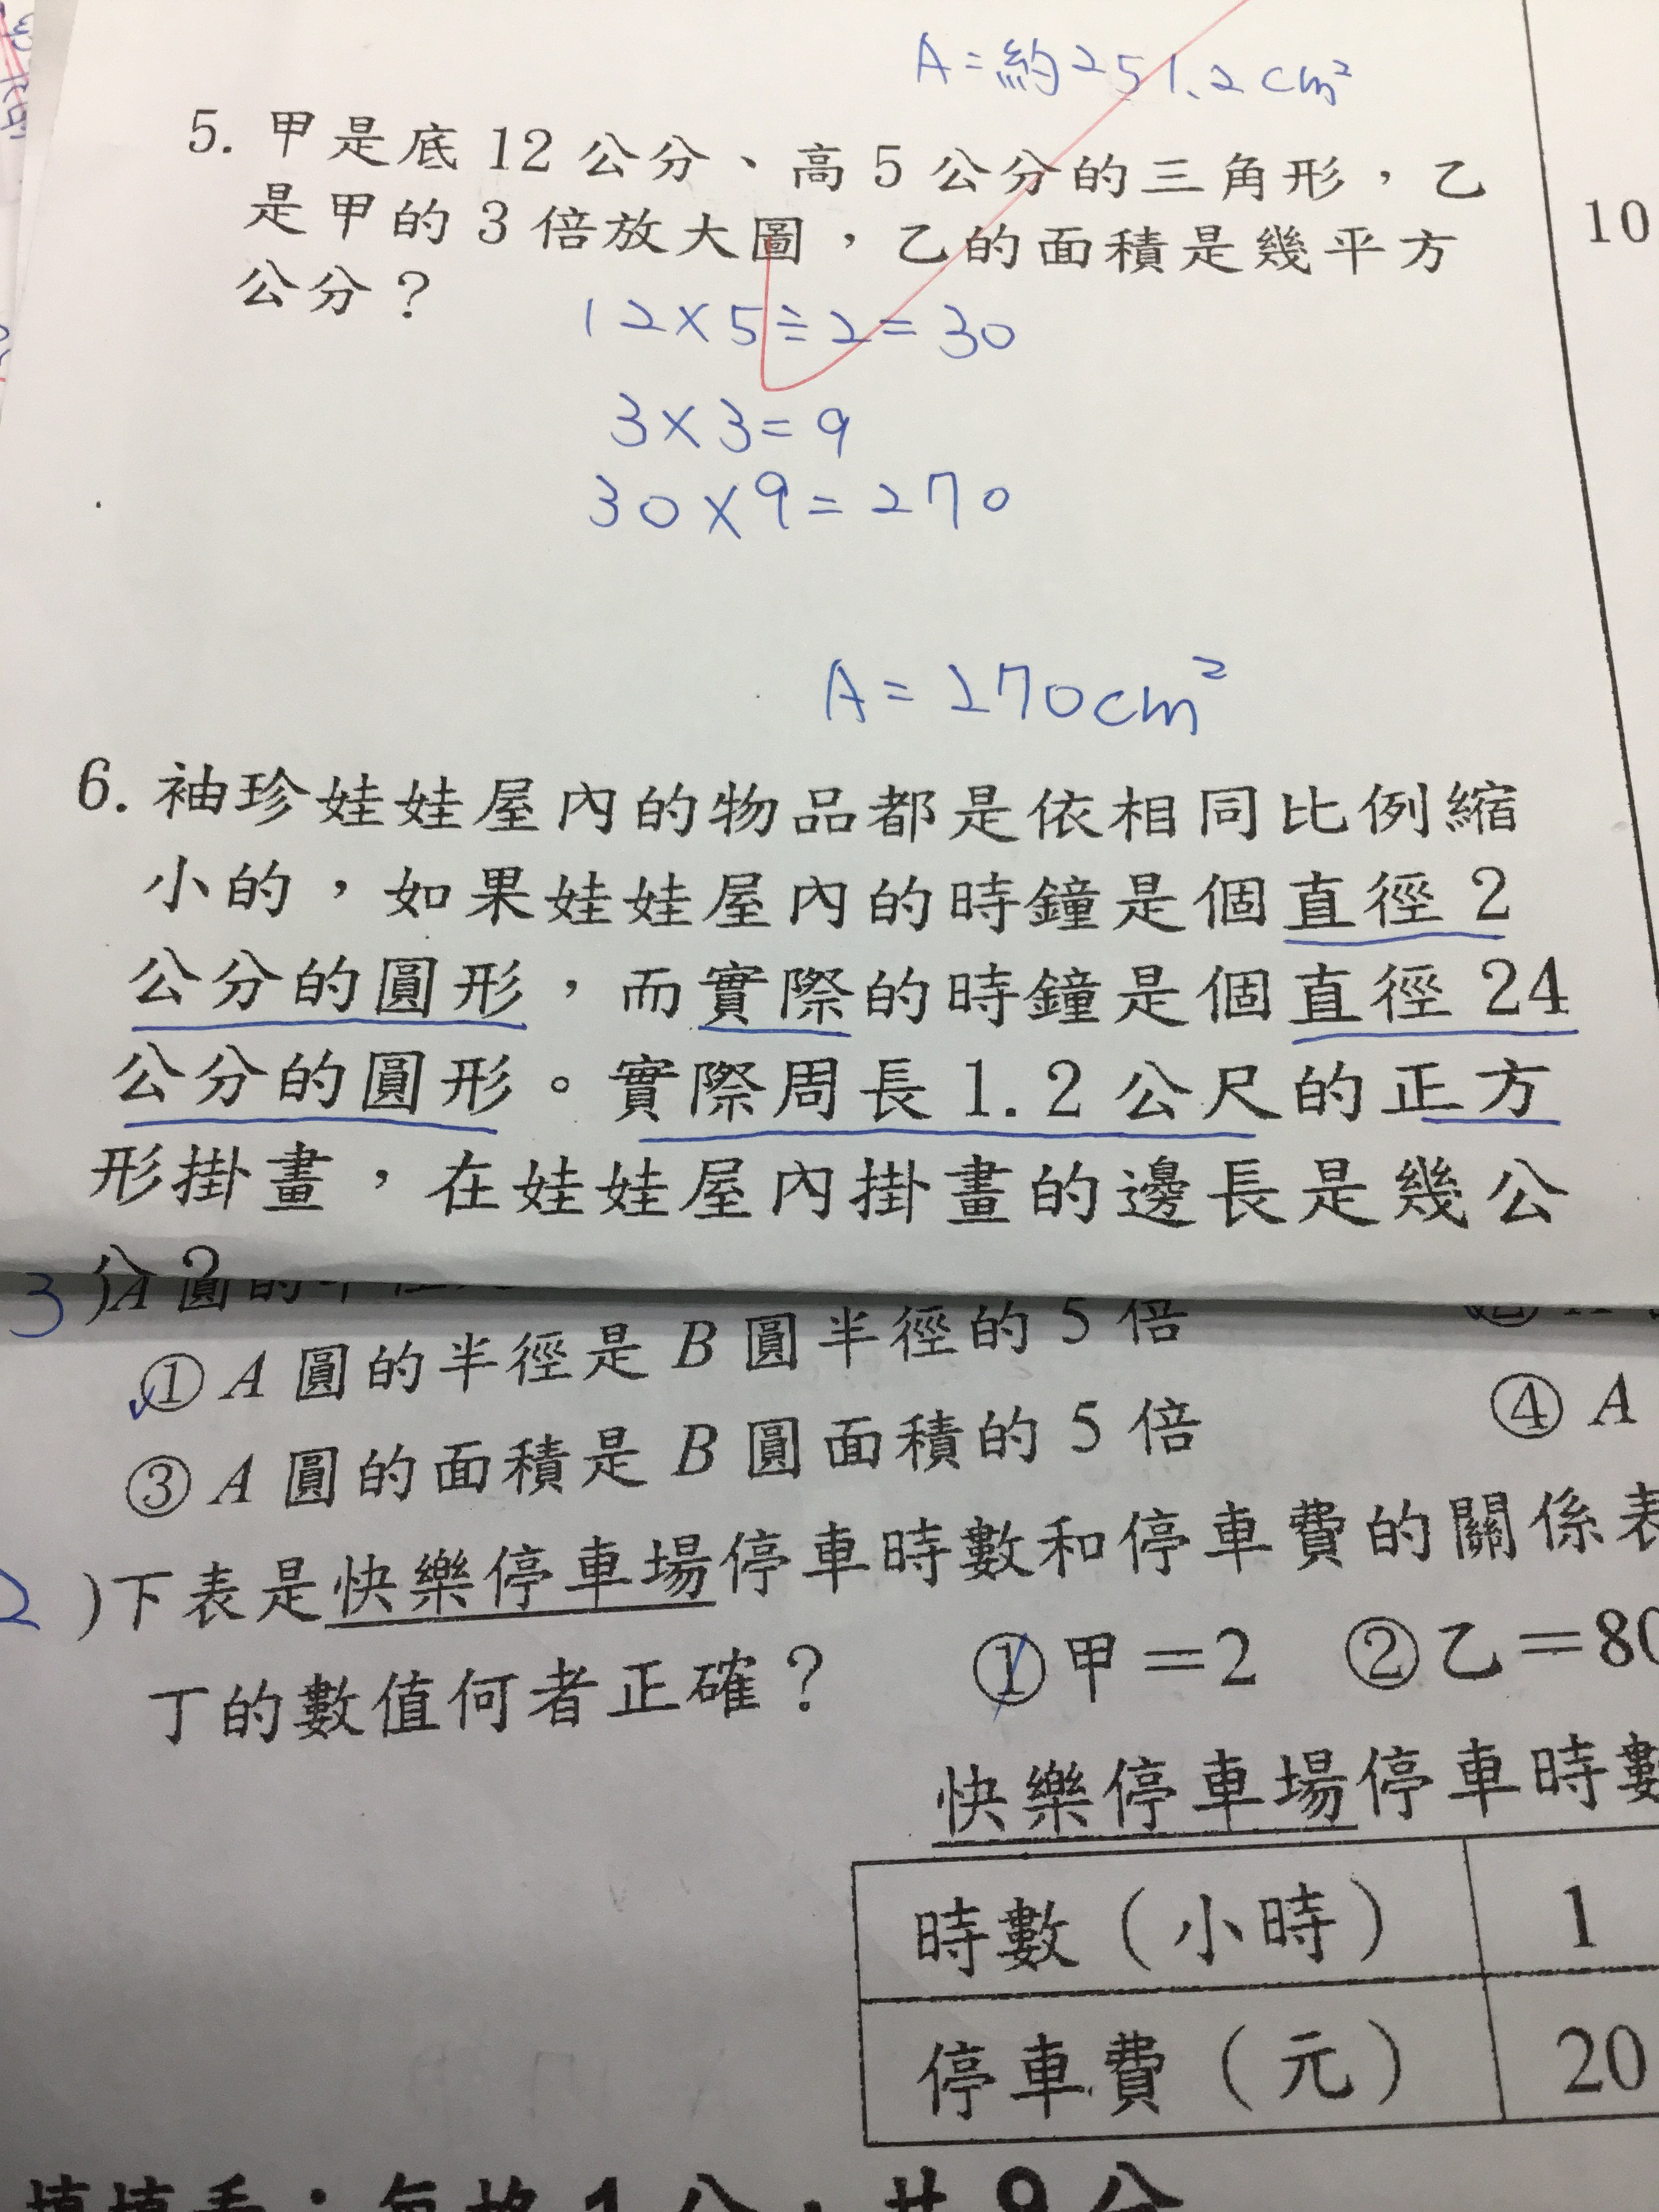 A=約251.2cm²
5. 甲是底12公分、高5公分的三角形，乙
是甲的3倍放大圖，乙的面積是幾平方
公分？
10
12×5÷2=30
3×3=9
30×9=270
A=270cm²
6. 袖珍娃娃屋內的物品都是依相同比例縮
小的，如果娃娃屋內的時鐘是個直徑2
公分的圓形，而實際的時鐘是個直徑24
公分的圓形。實際周長1.2公尺的正方
形掛畫，在娃娃屋內掛畫的邊長是幾公
分？
3 )A圓的
①A圓的半徑是B圓半徑的5倍
③A圓的面積是B圓面積的5倍 ④A
2 )下表是快樂停車場停車時數和停車費的關係表
丁的數值何者正確？ ①甲=2 ②乙=80
快樂停車場停車時數
時數（小時） 1
停車費（元） 20
填填看：每格1分，共9分